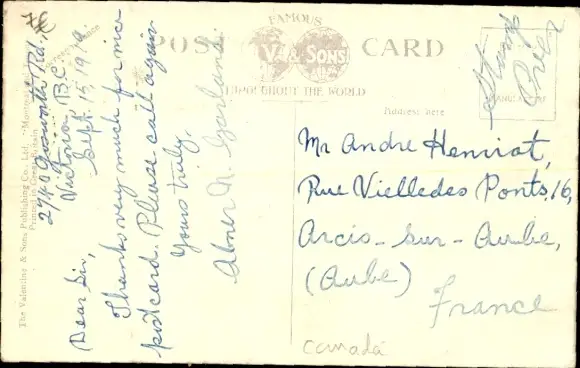 FAMOUS
POST CARD
VAL & SONS
THROUGHOUT THE WORLD
Address here
Stamp
Over
2740 Gosworth Rd.
Victoria, B.C.
Sept. 15, 1919
Dear Sir,
Thanks very much for nice
postcard. Please call again
Yours truly,
Abner N. Garland.
Mr Andre Henriot,
Rue Vielledes Ponts, 16,
Arcis-sur-Aube,
(Aube)
France
Canada
The Valentine & Sons Publishing Co., Ltd.
Printed in Great Britain